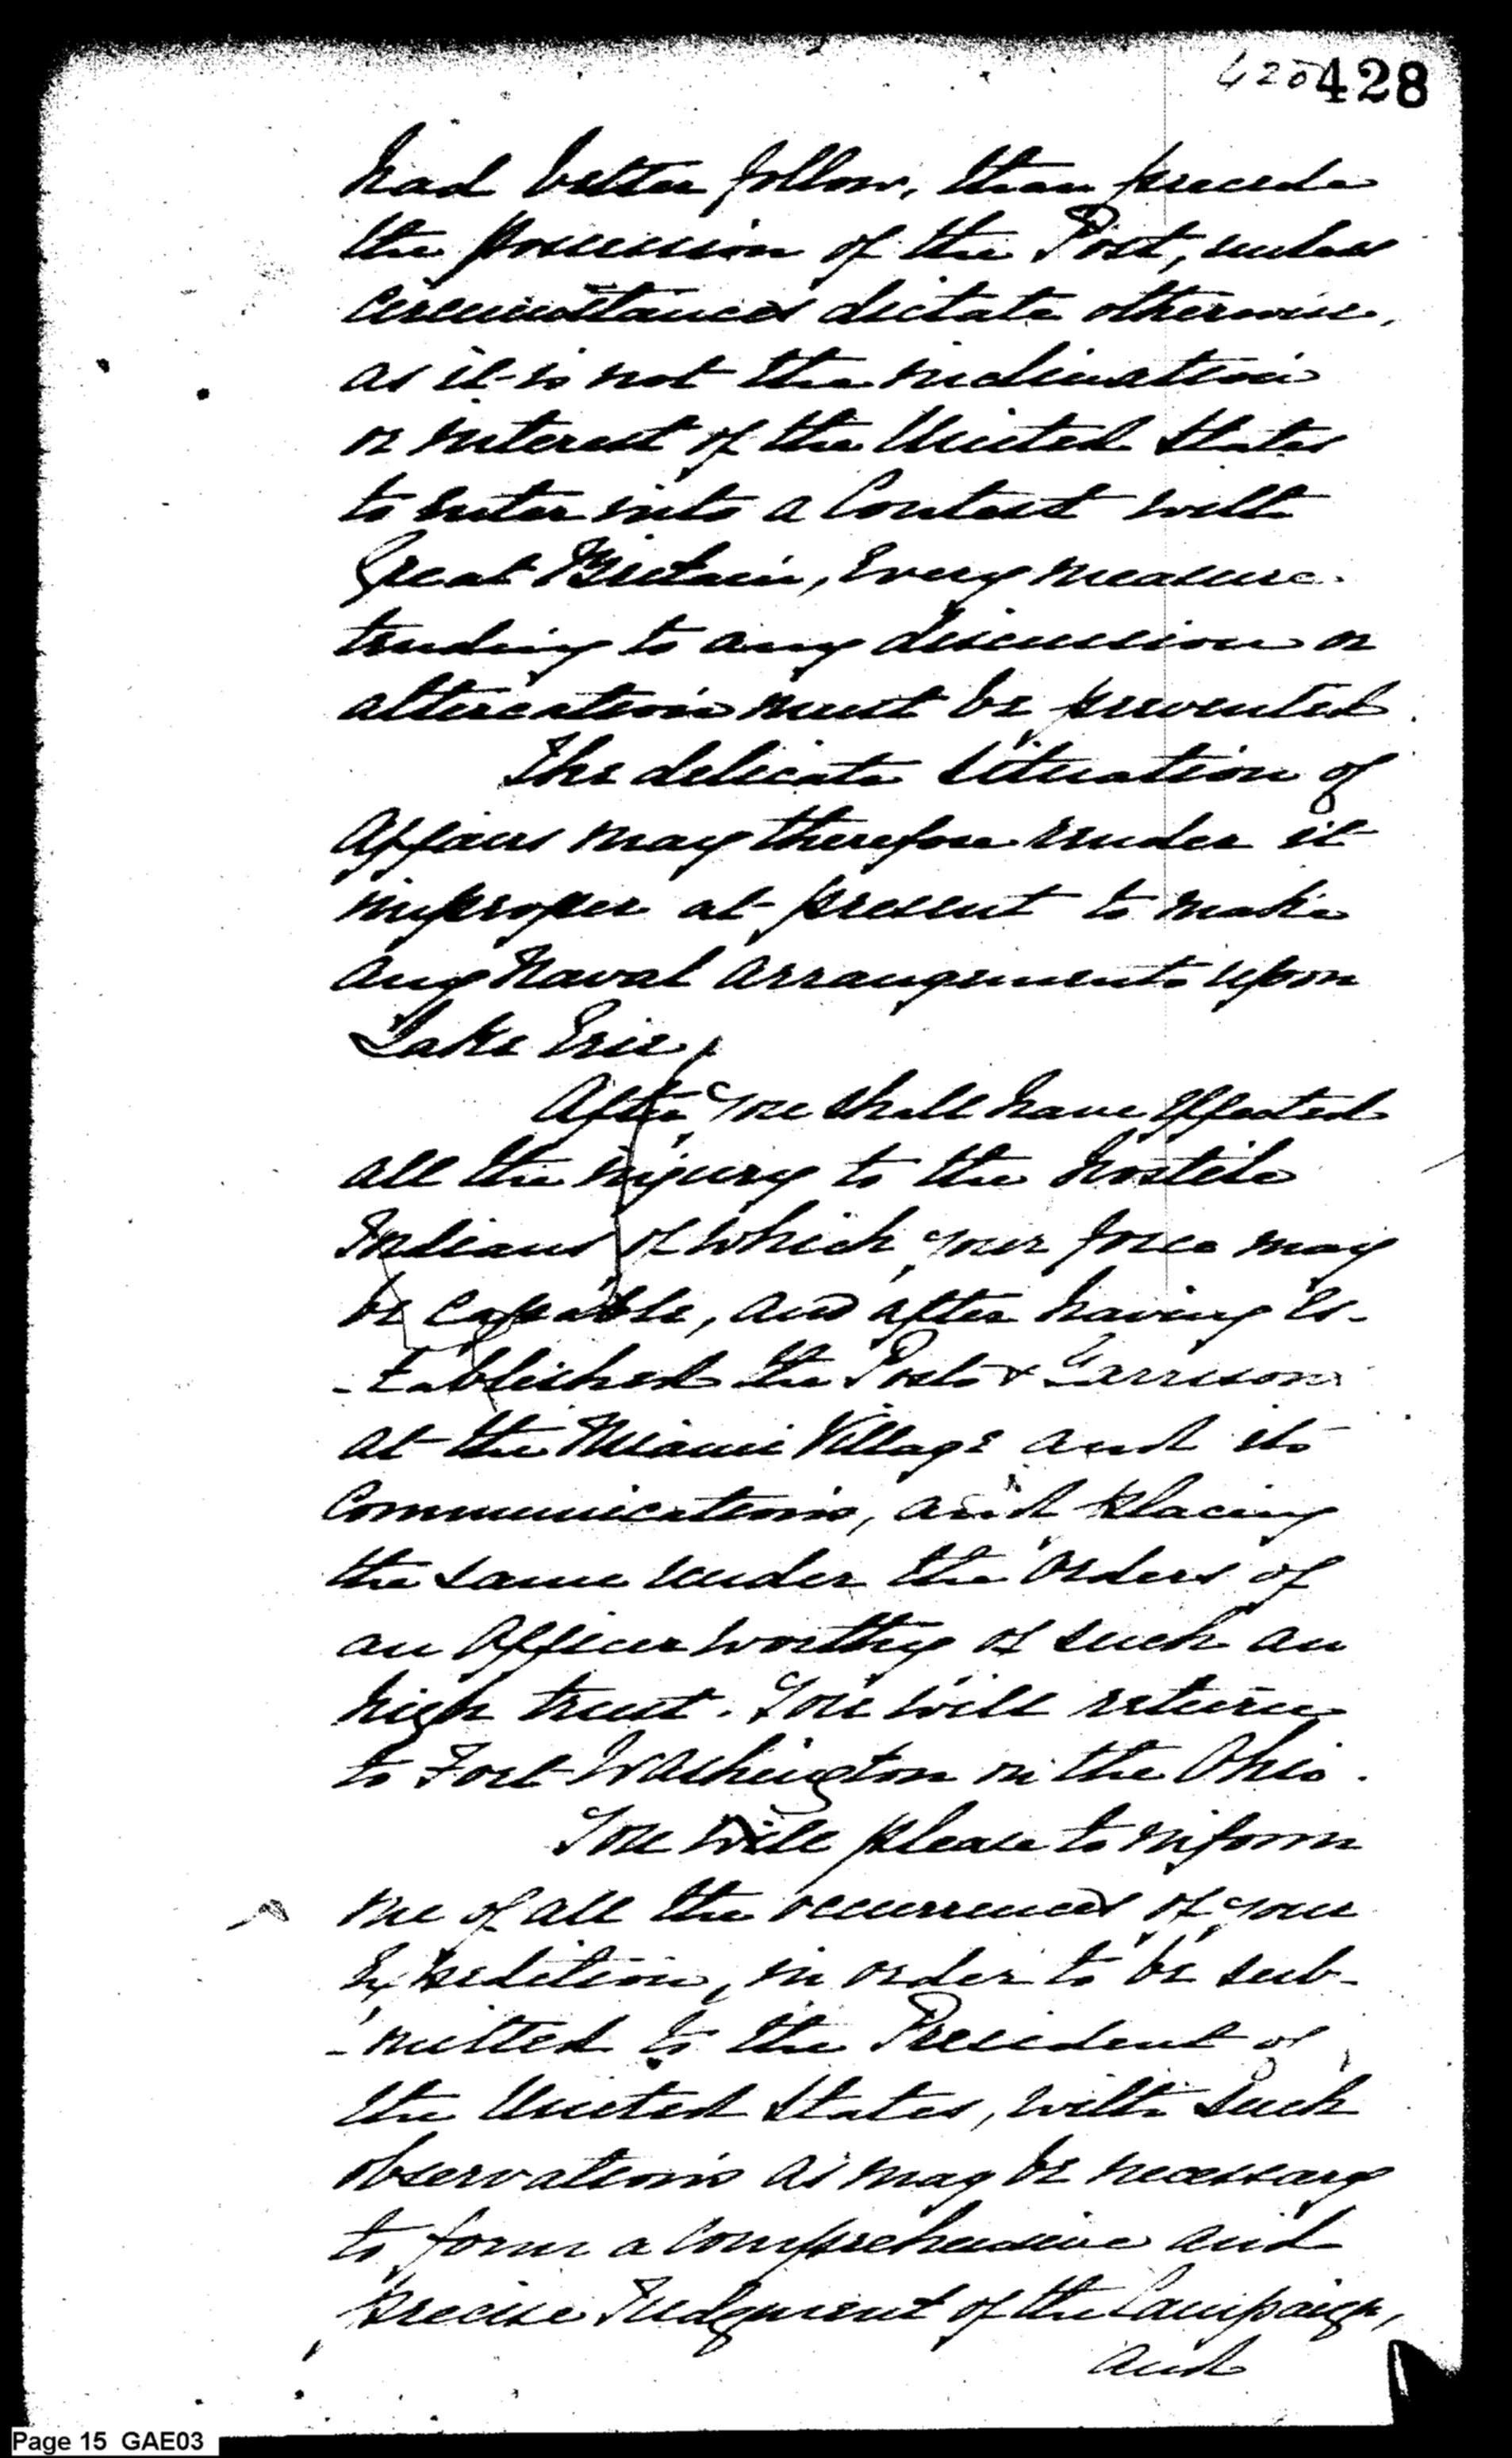 420 428
had better follow, than precede
the possession of the Post, unless
Circumstances dictate otherwise,
as it is not the inclination
or interest of the United States
to enter into a Contest with
Great Britain, Every measure
tending to any discussion or
altercation must be prevented.
The delicate situation of
Affairs may therefore render it
improper at present to make
any Naval arrangements upon
Lake Erie.
After you shall have effected
all the injury to the hostile
Indians of which your force may
be capable, and after having es-
-tablished the Posts & Garrisons
at the Miami Village and its
Communications, and placing
the same under the orders of
an Officer worthy of such an
high trust. You will return
to Fort Washington on the Ohio.
You will please to inform
me of all the occurrences of your
Expedition, in order to be sub-
-mitted to the President of
the United States, with such
observations as may be necessary
to form a Comprehensive and
precise Judgment of the Campaign,
and
Page 15 GAE03